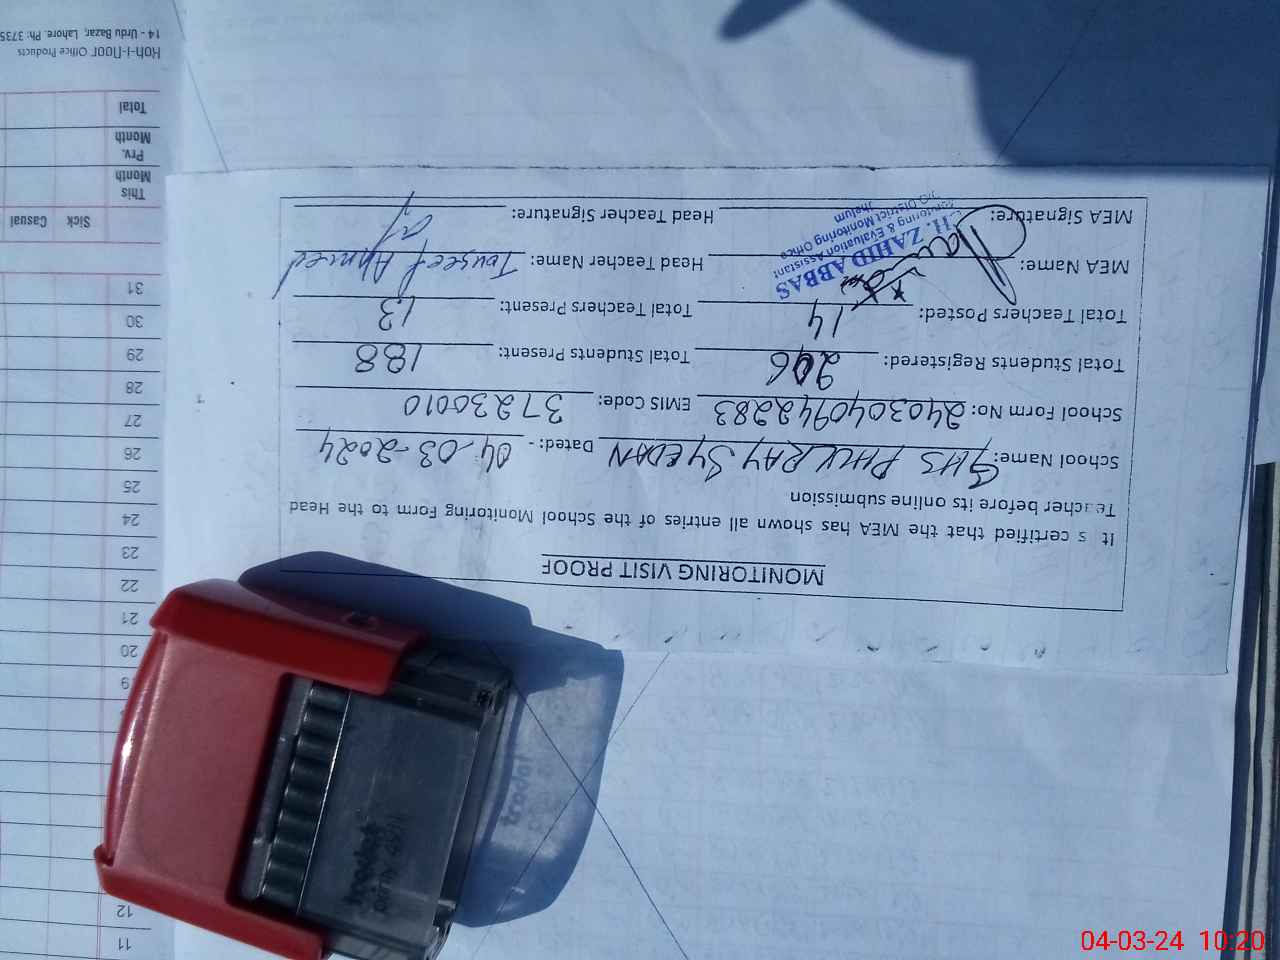 MONITORING VISIT PROOF
It s certified that the MEA has shown all entries of the School Monitoring Form to the Head
Teacher before its online submission
School Name: GHS PHULRAY SYEDAN Dated: - 04-03-2024
School Form No: 2403040942283 EMIS Code: 37230010
Total Students Registered: 206 Total Students Present: 188
Total Teachers Posted: 14 Total Teachers Present: 13
MEA Name: Head Teacher Name: Touseef Ahmed
MEA Signature: Head Teacher Signature:
CH. ZAHID ABBAS
Monitoring & Evaluation Assistant
O/O District Monitoring Office
Jhelum
11
12
20
21
22
23
24
25
26
27
28
29
30
31
Sick Casual
This
Month
Prv.
Month
Total
Koh-i-noor Office Products
14 - Urdu Bazar, Lahore. Ph: 3735
trodat
trodat
04-03-24 10:20